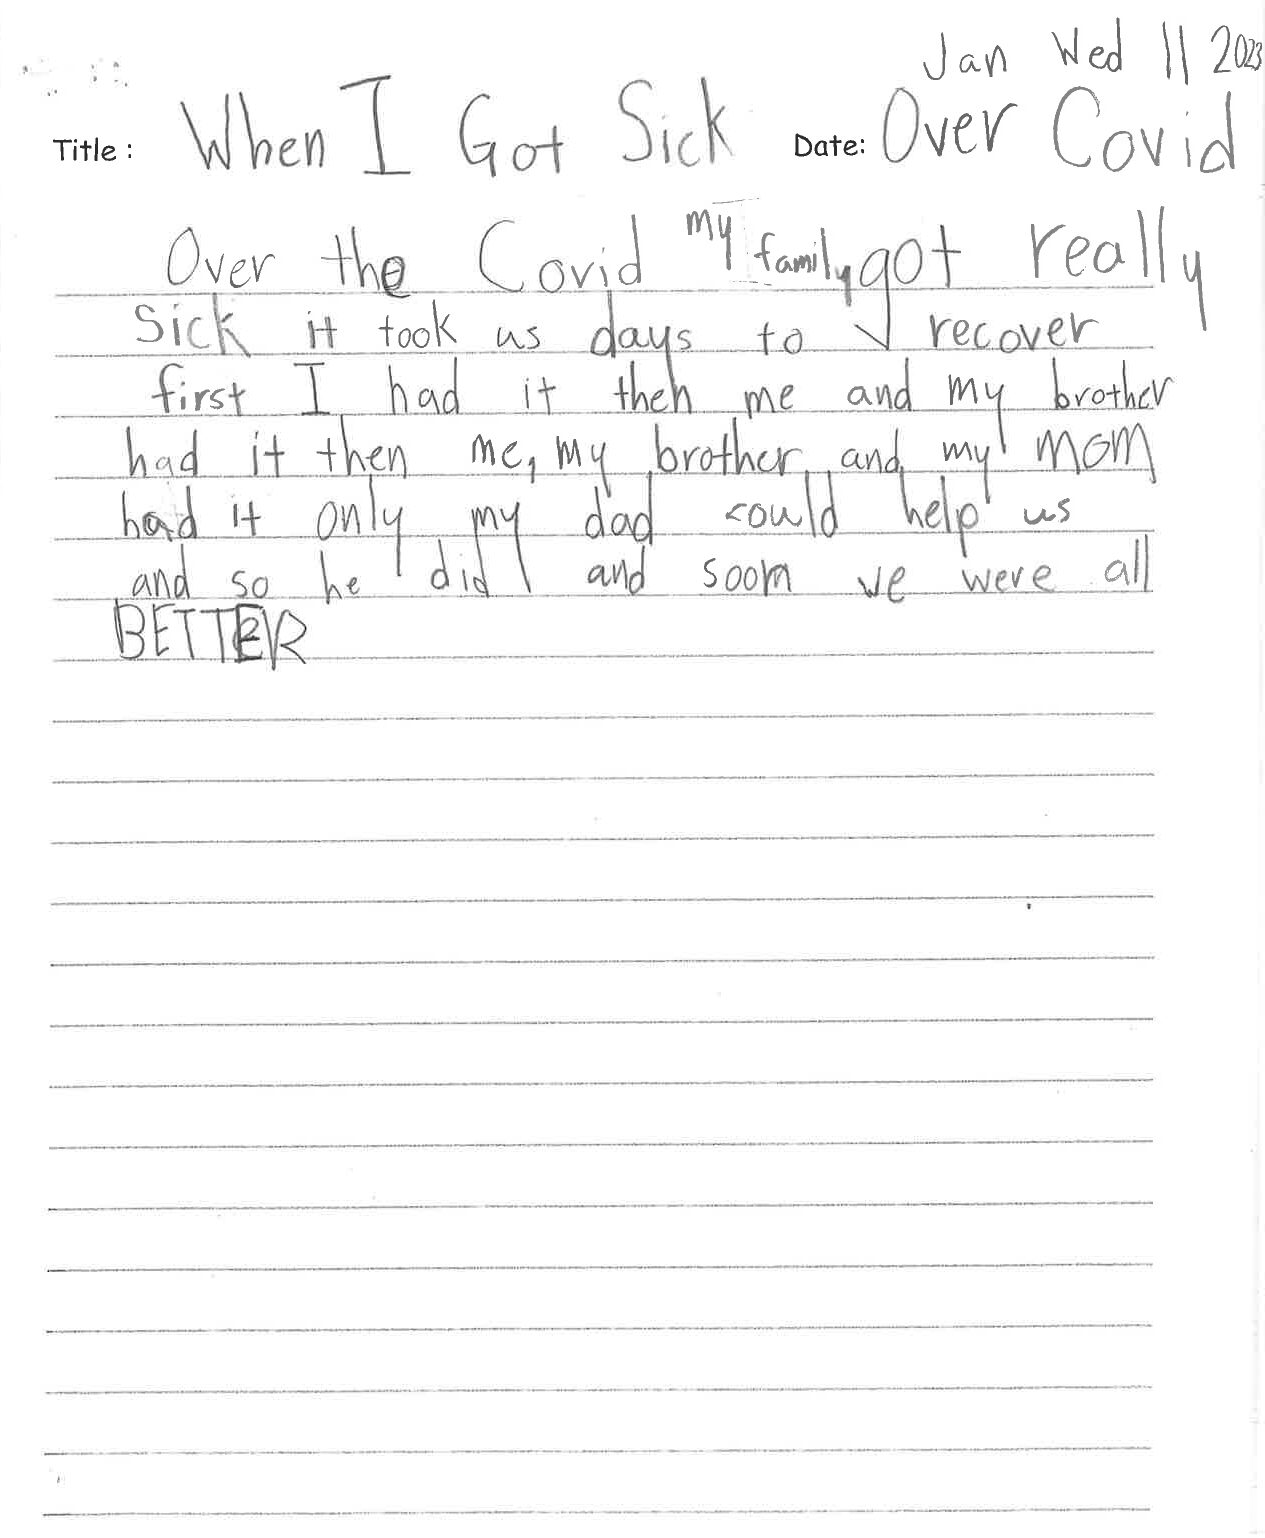 Jan Wed 11 2023
Title: When I Got Sick Date: Over Covid
Over the Covid my family got really
Sick it took us days to recover
first I had it then me and my brother
had it then me, my brother, and my mom
had it only my dad could help us
and so he did and soom we were all
BETTER